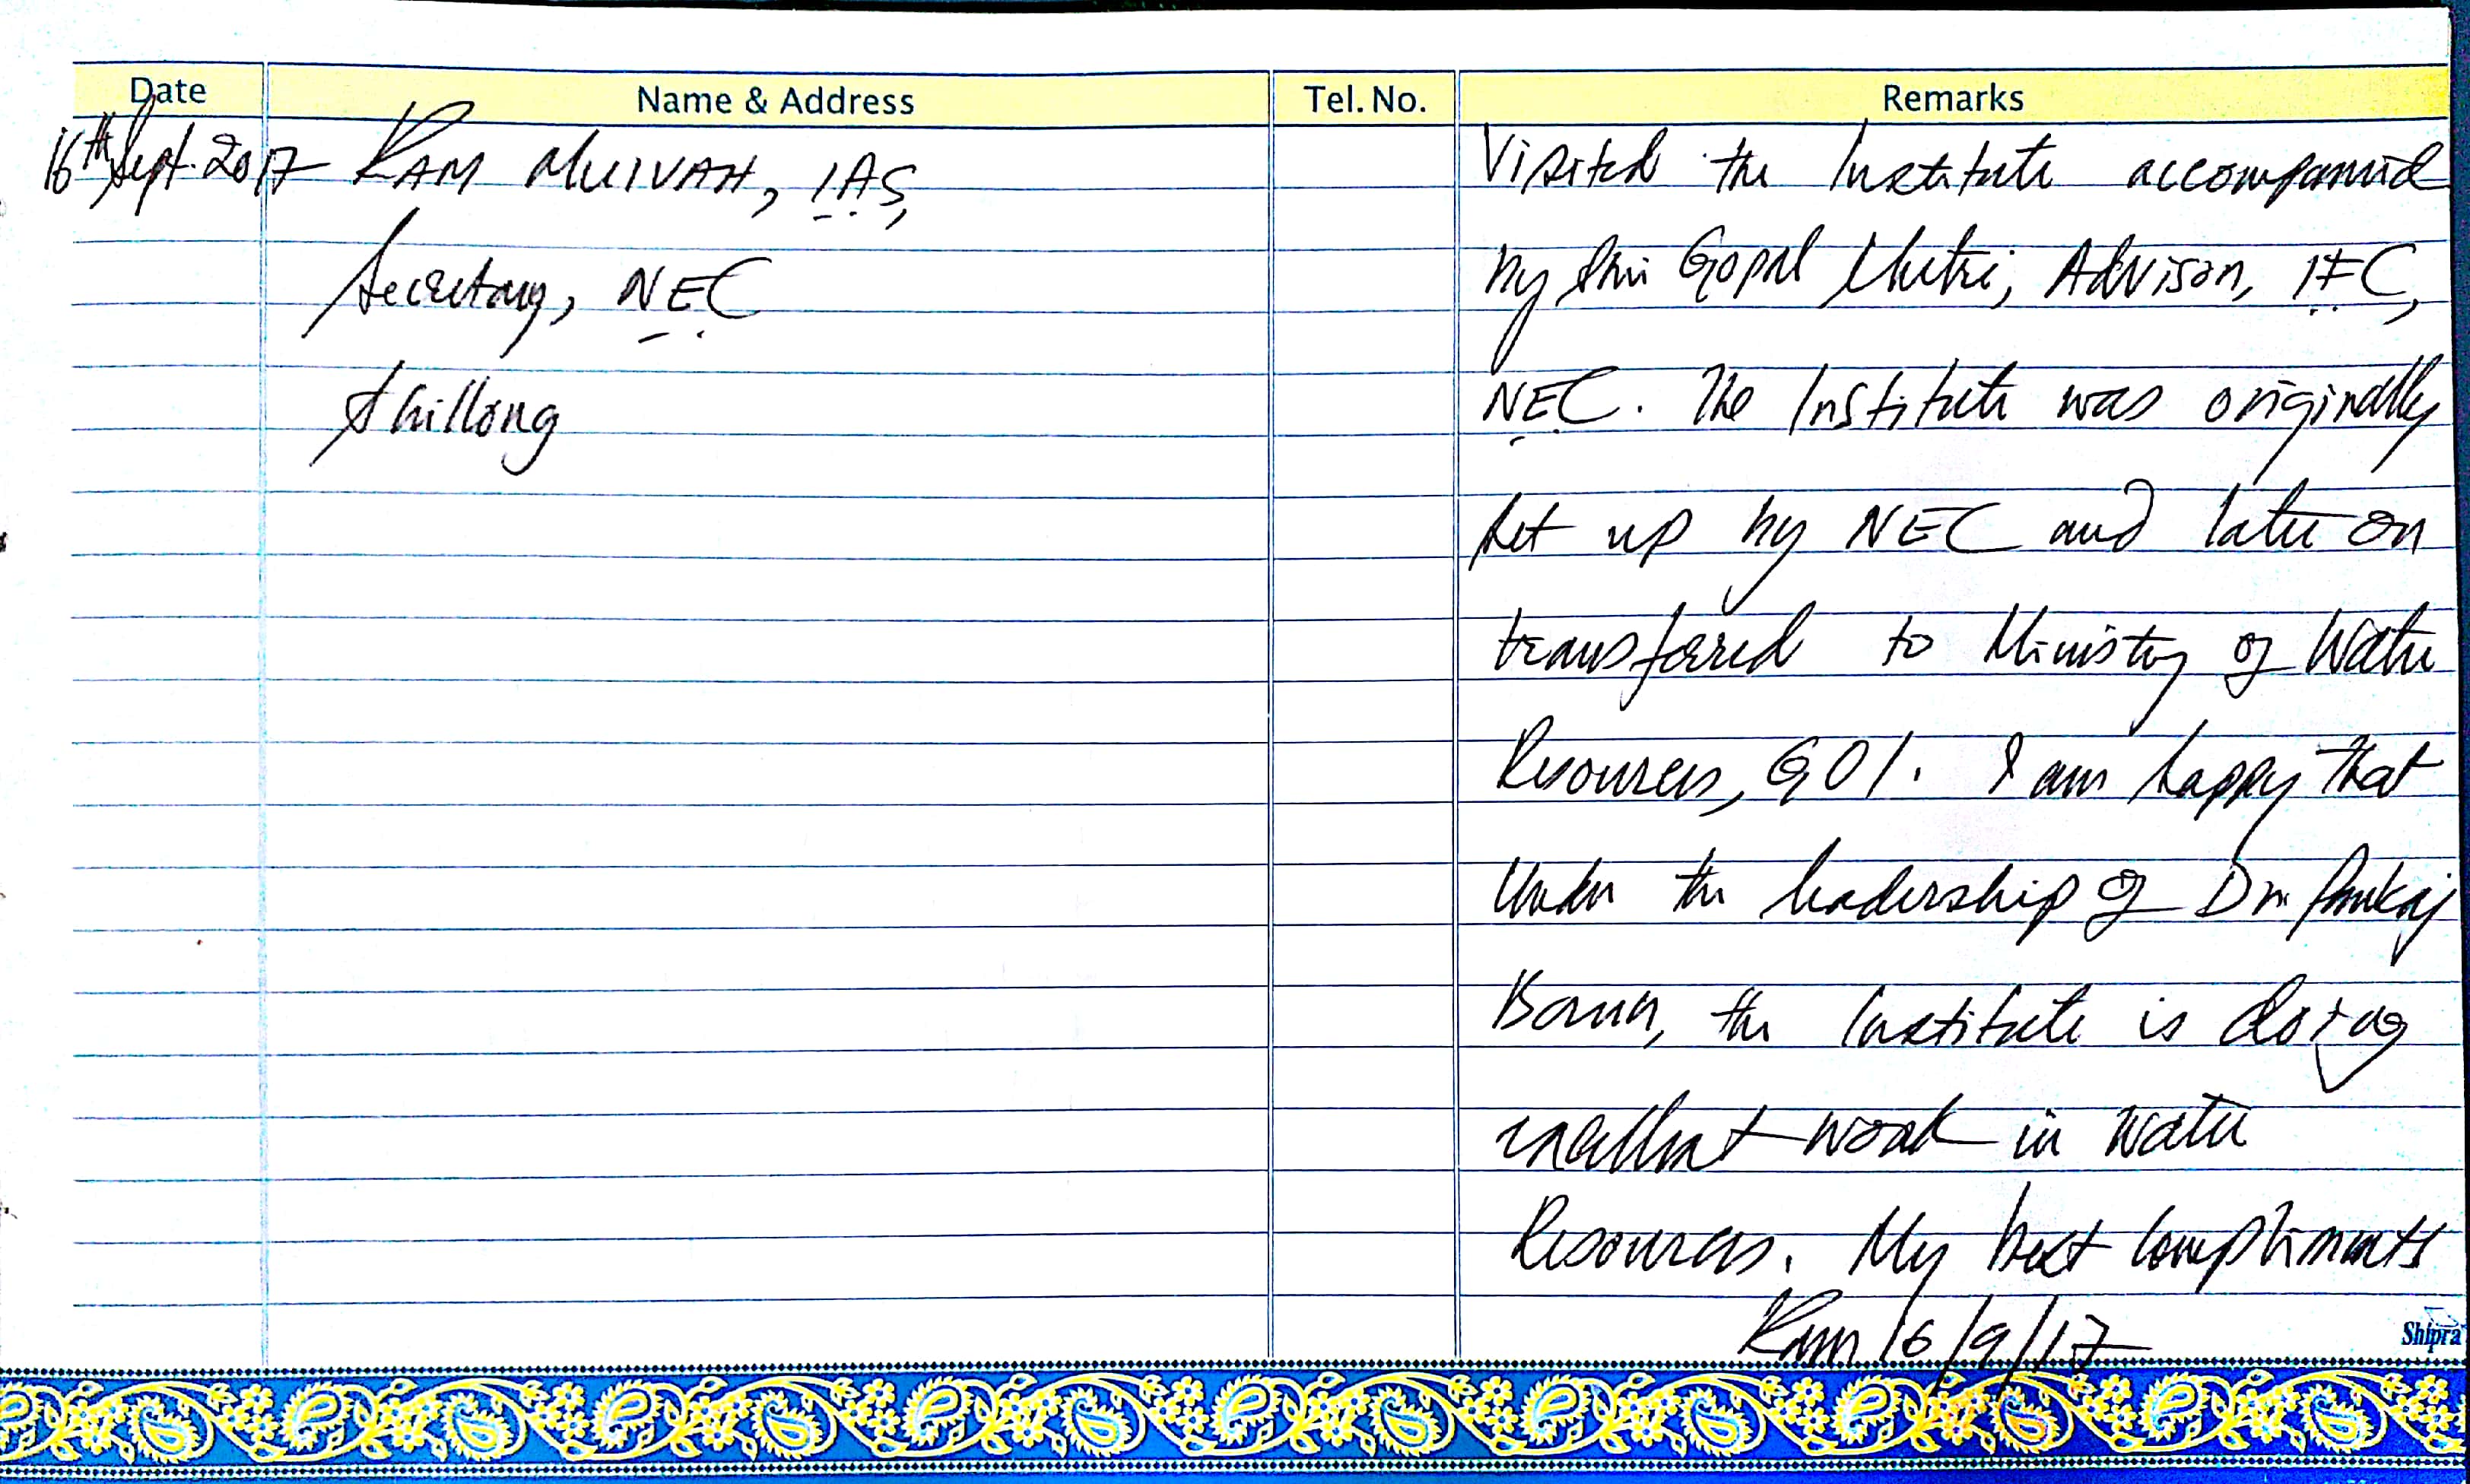 Date Name & Address Tel. No. Remarks
16th Sept. 2017 RAM MUIVAH, IAS,
Secretary, NEC
Shillong
Visited the Institute accompanied
by Shri Gopal Chetri, Advisor, IFC,
NEC. The Institute was originally
set up by NEC and later on
transferred to Ministry of Water
Resources, GOI. I am happy that
under the leadership of Dr. Pankaj
Barua, the Institute is doing
excellent work in water
Resources. My best compliments
Ram 16/9/17
Shipra